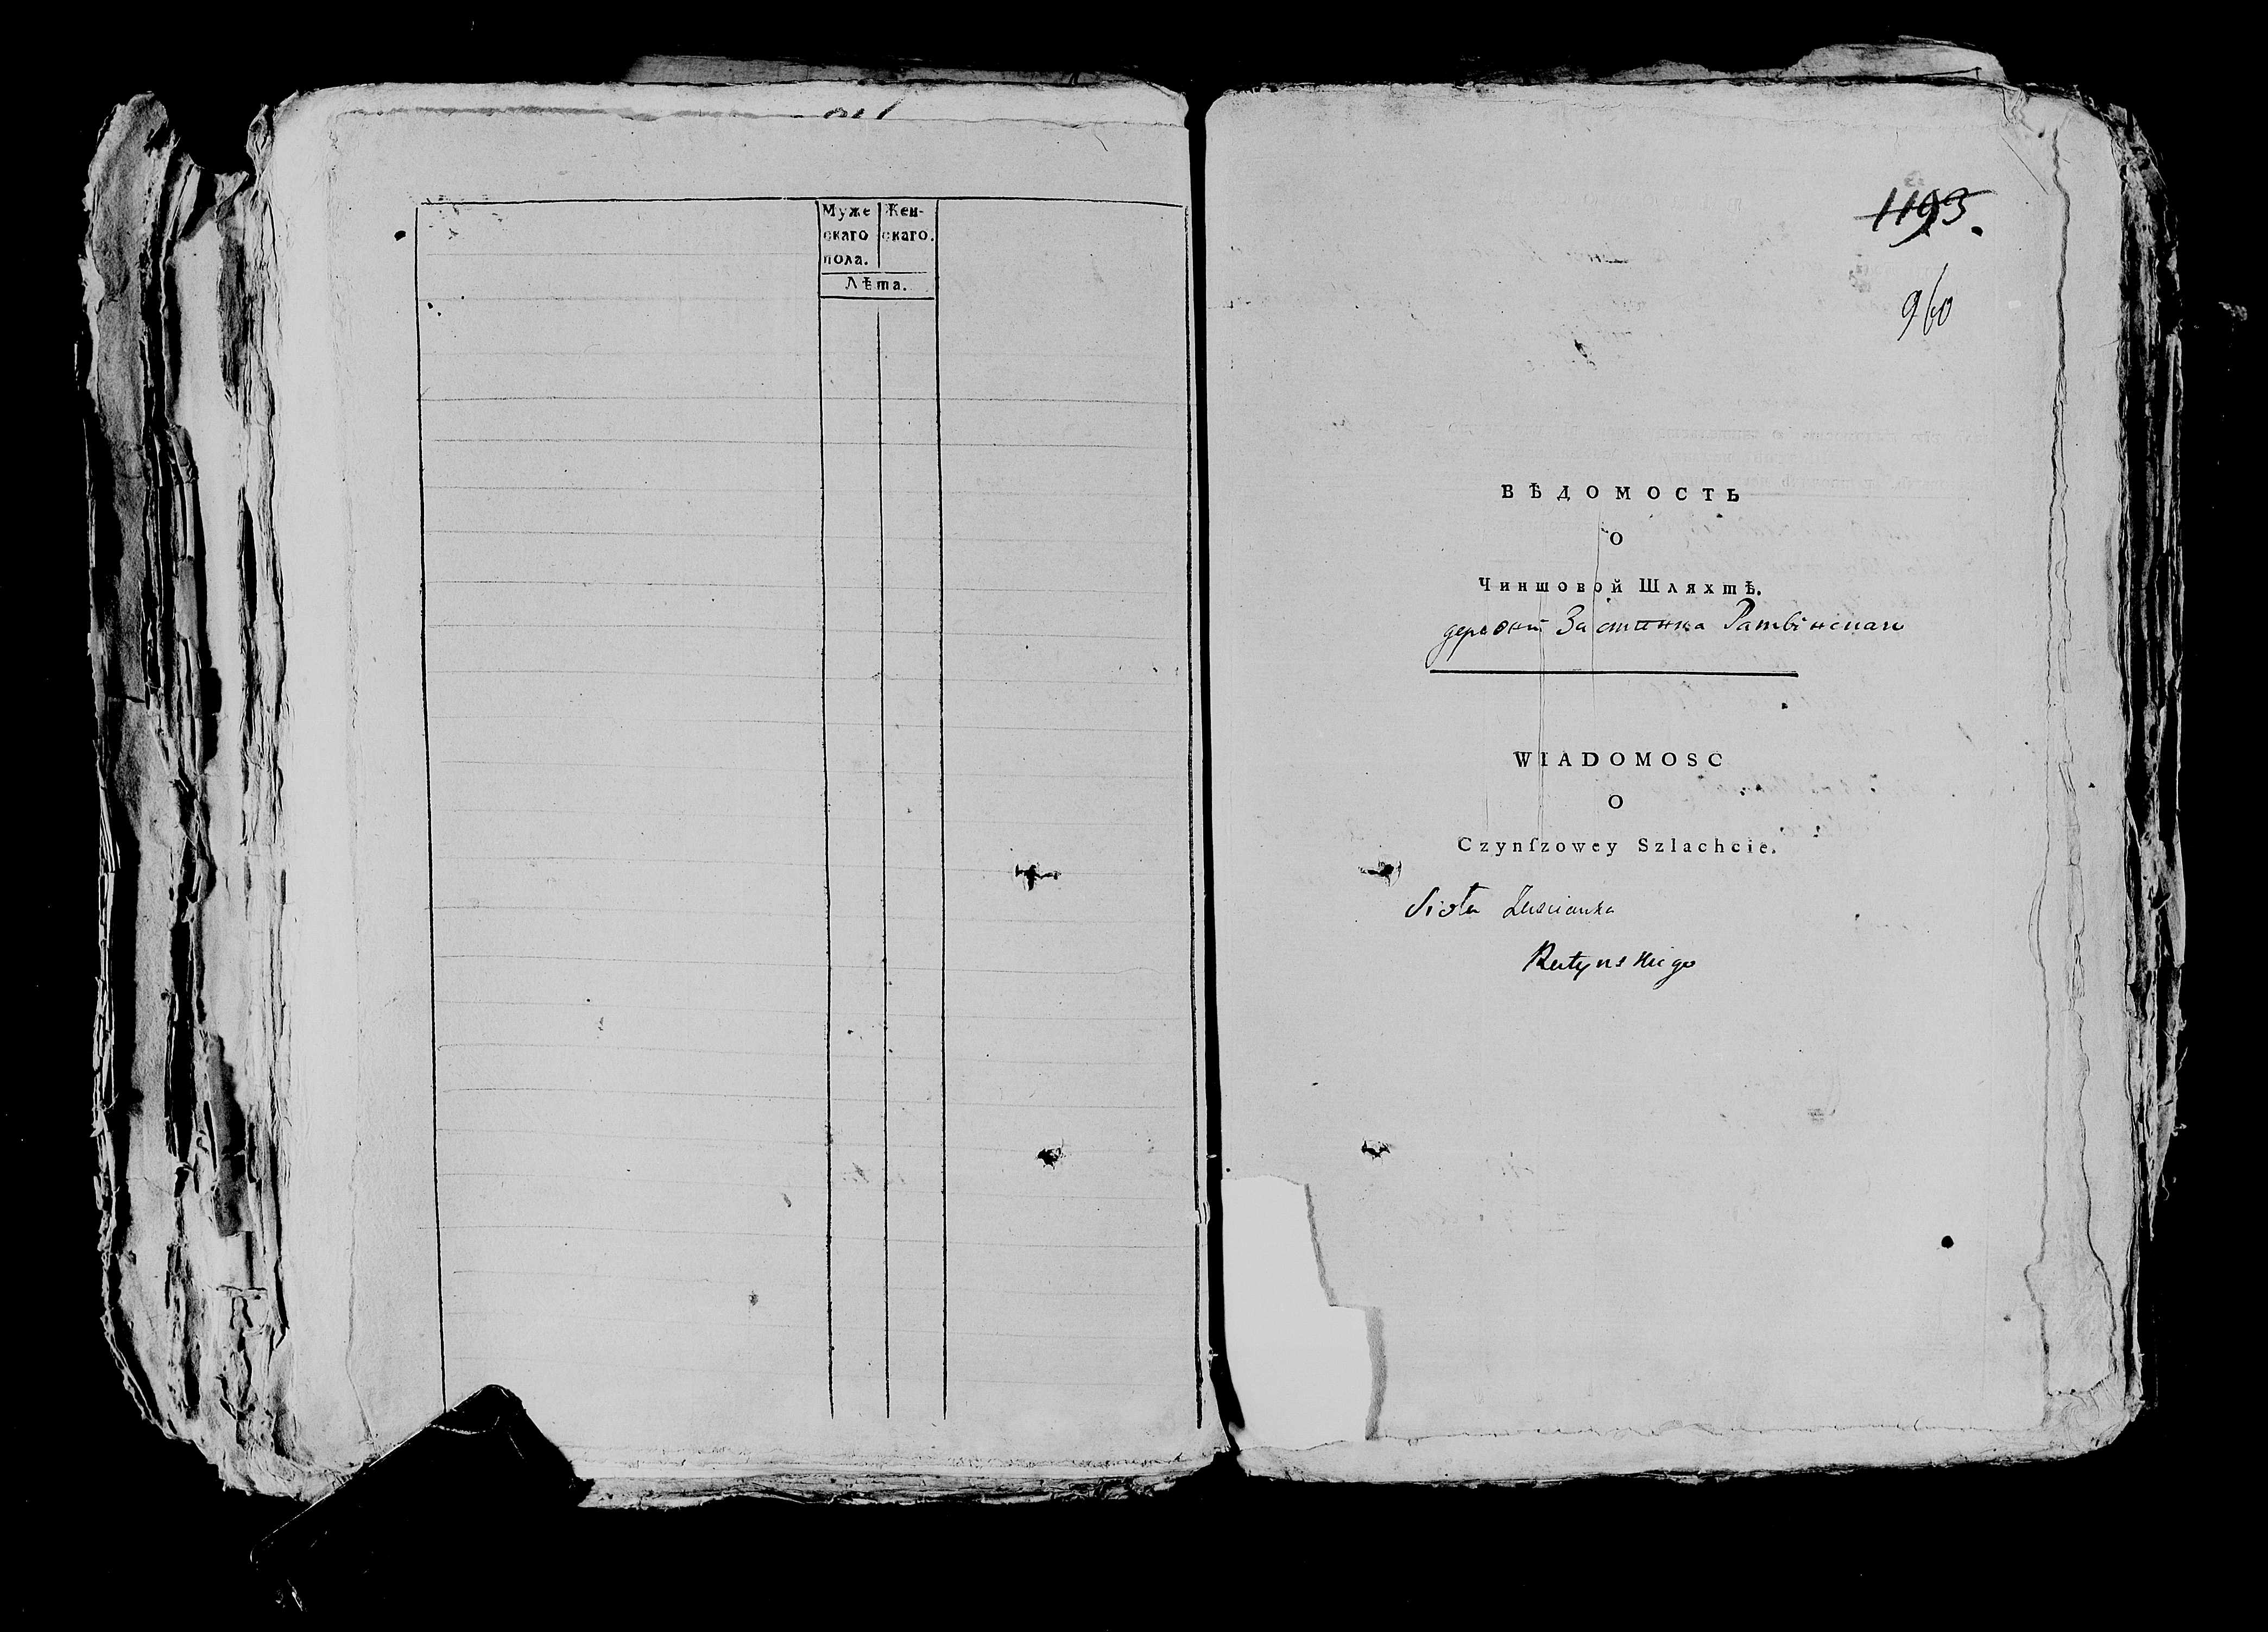 Муже
скаго
пола.
Жен-
скаго.
Лѣта.
1193.
960
ВѢДОМОСТЬ
О
Чиншовой Шляхтѣ.
деревни Застинка
WIADOMOSC
O
Czynſzowey Szlachcie.
Sioła Zascianka
Ratynskiego